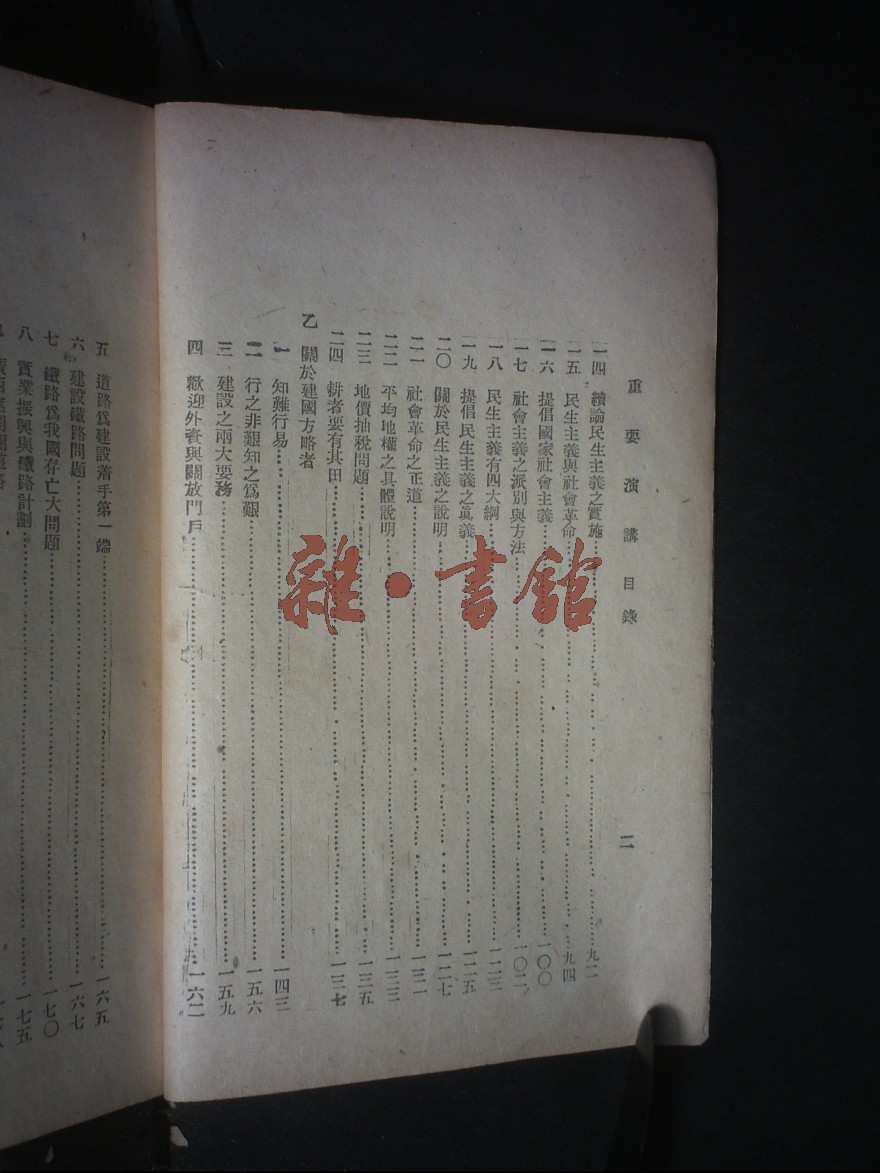 重要演講目錄 二
一四 續論民生主義之實施 九二
一五 民生主義與社會革命 九四
一六 提倡國家社會主義 一〇〇
一七 社會主義之派別與方法 一〇二
一八 民生主義有四大綱 一二三
一九 提倡民生主義之眞義 一二五
二〇 關於民生主義之說明 一二七
二一 社會革命之正道 一三二
二二 平均地權之具體說明 一三三
二三 地價抽稅問題 一三五
二四 耕者要有其田 一三七
乙 關於建國方略者
一 知難行易 一四三
二 行之非艱知之爲艱 一五六
三 建設之兩大要務 一五九
四 歡迎外資與關放門戶 一六二
五 道路爲建設着手第一端 一六五
六 建設鐵路問題 一六七
七 鐵路爲我國存亡大問題 一七〇
八 實業振興與鐵路計劃 一七五
雜·書館